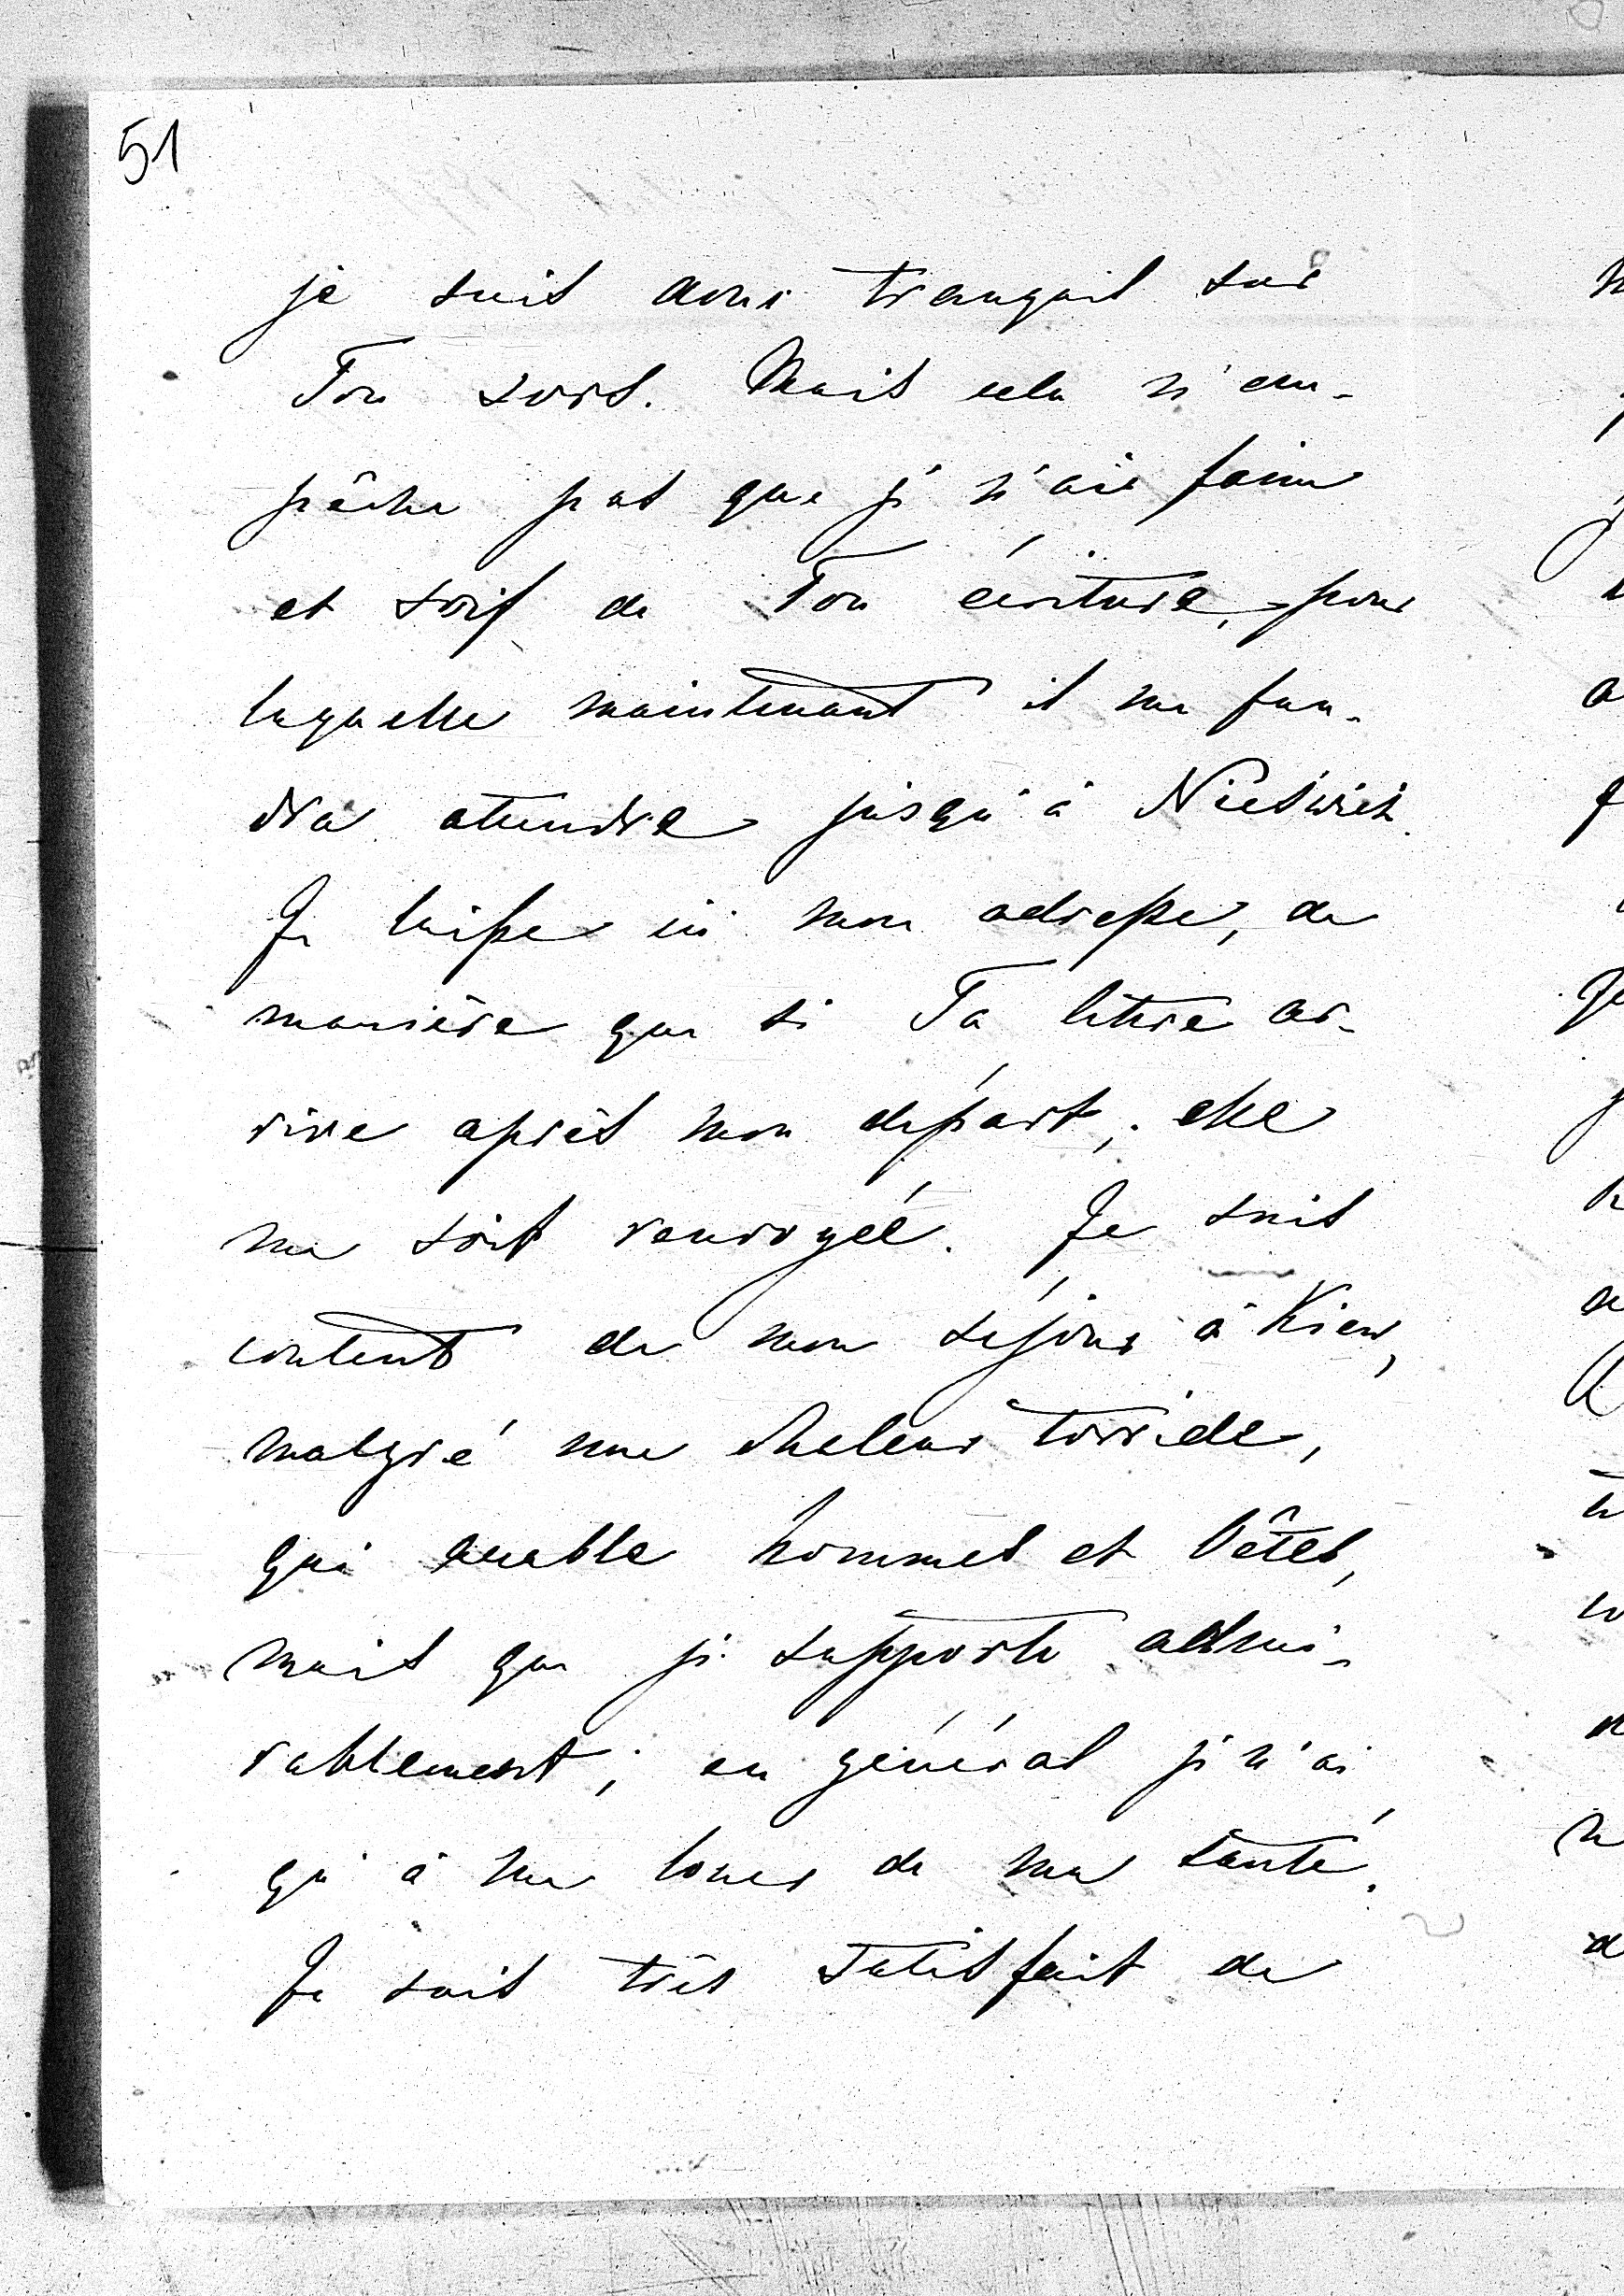 51
je suis donc tranquil sur
Ton sort. Mais cela n'em-
pêche pas que je n'aie faim
et soif de Ton écriture, pour
laquelle maintenant il me fau-
dra attendre jusqu'à Nieśwież.
Je laisse ici mon adresse, de
manière que si Ta lettre ar-
rive après mon départ, elle
me soit renvoyée. Je suis
content de mon séjour à Kiew,
malgré une chaleur torride,
qui accable hommes et bêtes,
mais que je supporte admi-
rablement; en général je n'ai
qu'à me louer de ma santé.
Je suis très satisfait de